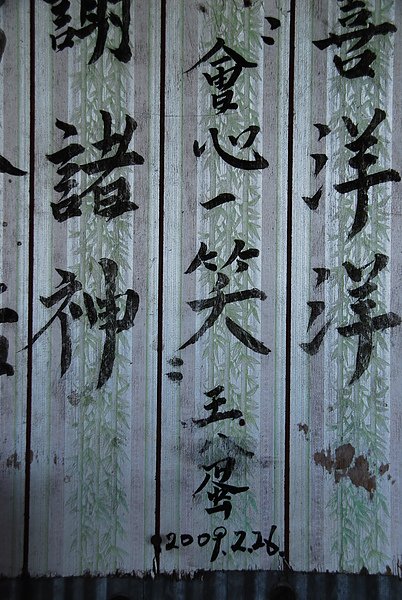 喜洋洋
會心一笑 王八蛋
2009.2.26.
謝諸神